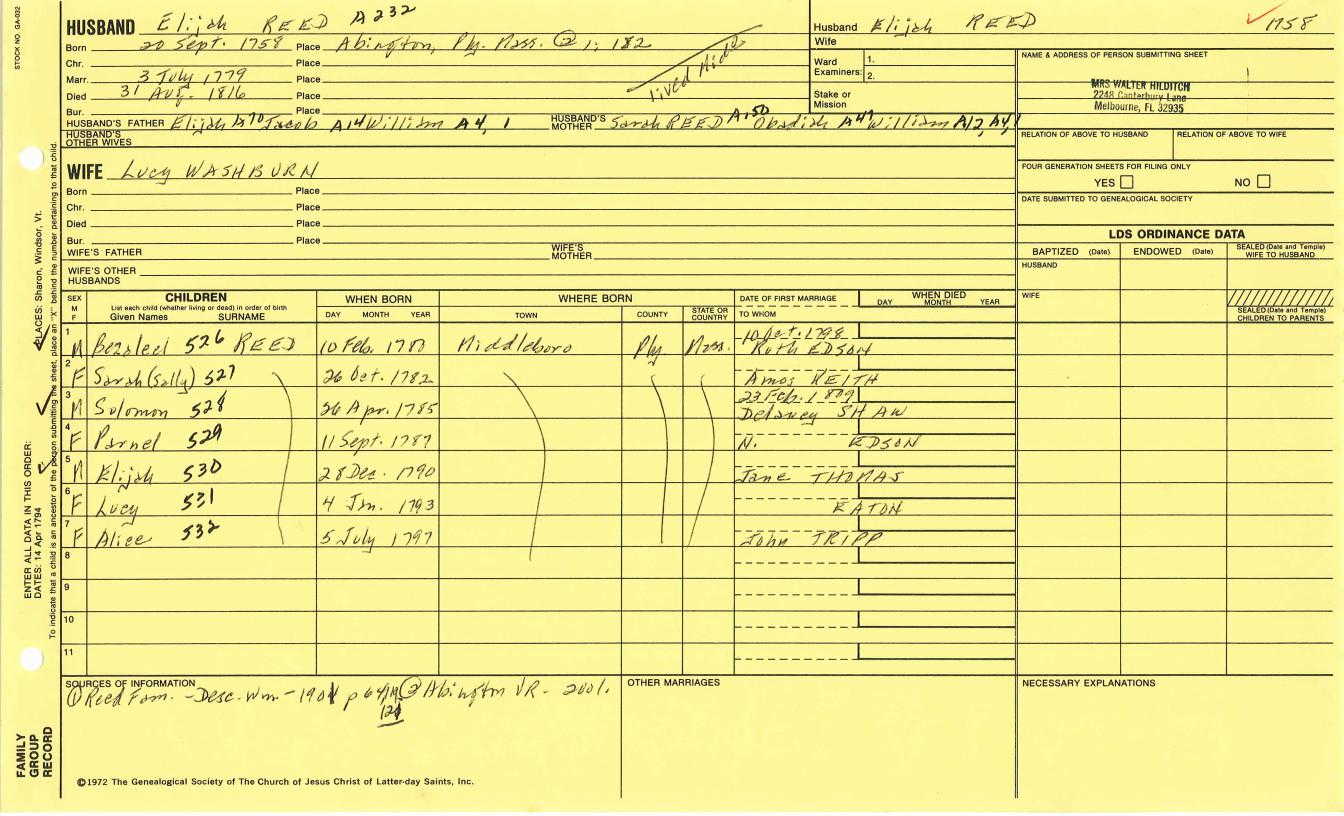 STOCK NO. GA-032
HUSBAND Elijah REED A232
Husband Elijah REED 1758
Wife
Born 20 Sept. 1758 Place Abington, Ply. Mass. ② 1; 182
Chr. Place
Marr. 3 July 1779 Place
Died 31 Aug. 1816 Place
Bur. Place
lived Midd
Ward Examiners: 1.
2.
Stake or Mission
NAME & ADDRESS OF PERSON SUBMITTING SHEET
MRS WALTER HILDITCH
2248 Canterbury Lane
Melbourne, FL 32935
HUSBAND'S FATHER Elijah A70 Jacob A14 William A4, 1
HUSBAND'S MOTHER Sarah REED A150 Obadiah A47 William A12, A4, 1
HUSBAND'S OTHER WIVES
RELATION OF ABOVE TO HUSBAND
RELATION OF ABOVE TO WIFE
WIFE Lucy WASHBURN
Born Place
Chr. Place
Died Place
Bur. Place
WIFE'S FATHER
WIFE'S MOTHER
WIFE'S OTHER HUSBANDS
FOUR GENERATION SHEETS FOR FILING ONLY
YES NO
DATE SUBMITTED TO GENEALOGICAL SOCIETY
LDS ORDINANCE DATA
BAPTIZED (Date) ENDOWED (Date) SEALED (Date and Temple) WIFE TO HUSBAND
HUSBAND
WIFE
SEALED (Date and Temple) CHILDREN TO PARENTS
SEX M F
CHILDREN
List each child (whether living or dead) in order of birth
Given Names SURNAME
WHEN BORN
DAY MONTH YEAR
WHERE BORN
TOWN COUNTY STATE OR COUNTRY
DATE OF FIRST MARRIAGE
TO WHOM
WHEN DIED
DAY MONTH YEAR
1 M Bezaleel 526 REED 10 Feb. 1780 Middleboro Ply Mass. 10 Oct. 1798 Ruth EDSON
2 F Sarah (Sally) 527 26 Oct. 1782 Amos KEITH
3 M Solomon 528 26 Apr. 1785 23 Feb. 1809 Delaney SHAW
4 F Parnel 529 11 Sept. 1787 N. EDSON
5 M Elijah 530 28 Dec. 1790 Jane THOMAS
6 F Lucy 531 4 Jan. 1793 EATON
7 F Alice 532 5 July 1797 John TRIPP
8
9
10
11
SOURCES OF INFORMATION
① Reed Fam. - Desc. Wm - 1901 p 64, ② Abington VR - 2001.
121
OTHER MARRIAGES
NECESSARY EXPLANATIONS
©1972 The Genealogical Society of The Church of Jesus Christ of Latter-day Saints, Inc.
FAMILY GROUP RECORD
ENTER ALL DATA IN THIS ORDER:
DATES: 14 Apr 1794 PLACES: Sharon, Windsor, Vt.
To indicate that a child is an ancestor of the person submitting the sheet, place an "X" behind the number pertaining to that child.